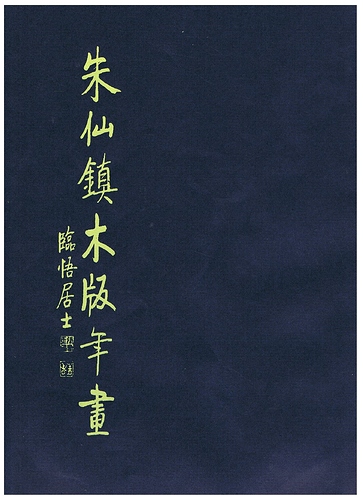 朱仙鎮木版年畫
臨悟居士